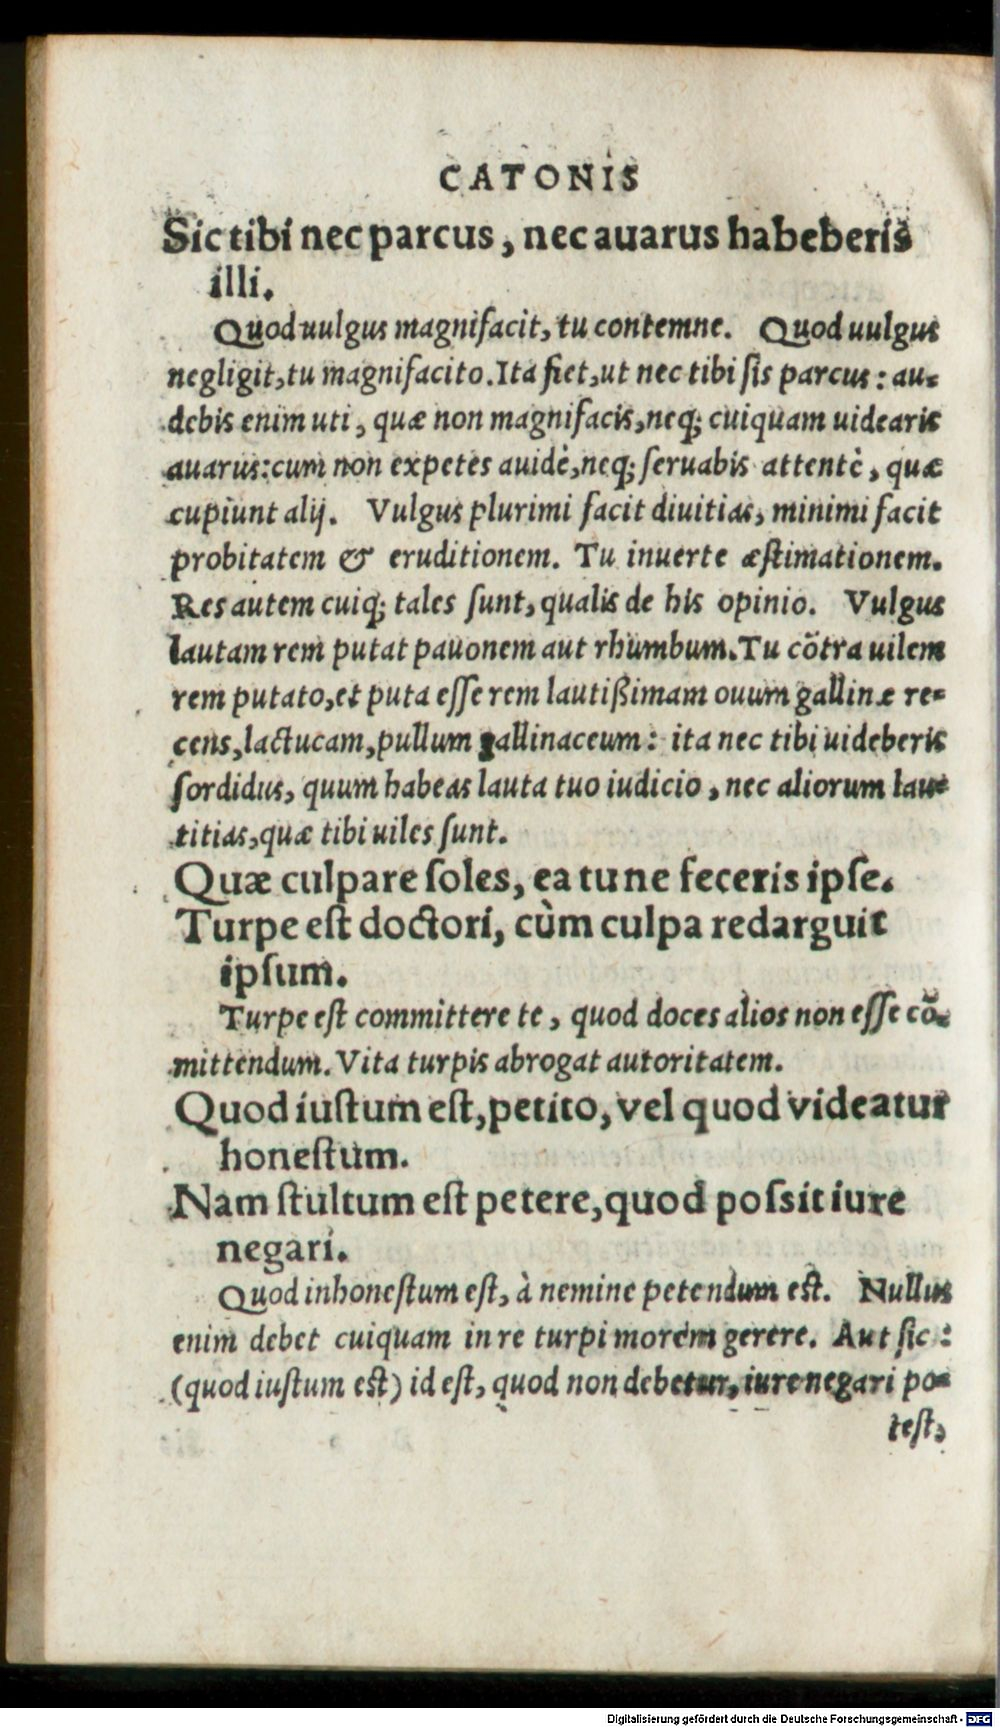 CATONIS
Sic tibi nec parcus, nec auarus habeberis
illi.
Quod uulgus magnifacit, tu contemne. Quod uulgus
negligit, tu magnifacito. Ita fiet, ut nec tibi sis parcus: au-
debis enim uti, quæ non magnifacis, neq; cuiquam uidearis
auarus: cum non expetes auidè, neq; seruabis attentè, quæ
cupiunt alij. Vulgus plurimi facit diuitias, minimi facit
probitatem & eruditionem. Tu inuerte æstimationem.
Res autem cuiq; tales sunt, qualis de his opinio. Vulgus
lautam rem putat pauonem aut rhumbum. Tu cõtra uilem
rem putato, et puta esse rem lautißimam ouum gallinæ re-
cens, lactucam, pullum gallinaceum: ita nec tibi uideberis
sordidus, quum habeas lauta tuo iudicio, nec aliorum lau-
titias, quæ tibi uiles sunt.
Quæ culpare soles, ea tu ne feceris ipse.
Turpe est doctori, cùm culpa redarguit
ipsum.
Turpe est committere te, quod doces alios non esse cõ-
mittendum. Vita turpis abrogat autoritatem.
Quod iustum est, petito, vel quod videatur
honestum.
Nam stultum est petere, quod possit iure
negari.
Quod inhonestum est, à nemine petendum est. Nullus
enim debet cuiquam in re turpi morem gerere. Aut sic:
(quod iustum est) id est, quod non debetur, iure negari po-
test,
Digitalisierung gefördert durch die Deutsche Forschungsgemeinschaft - DFG